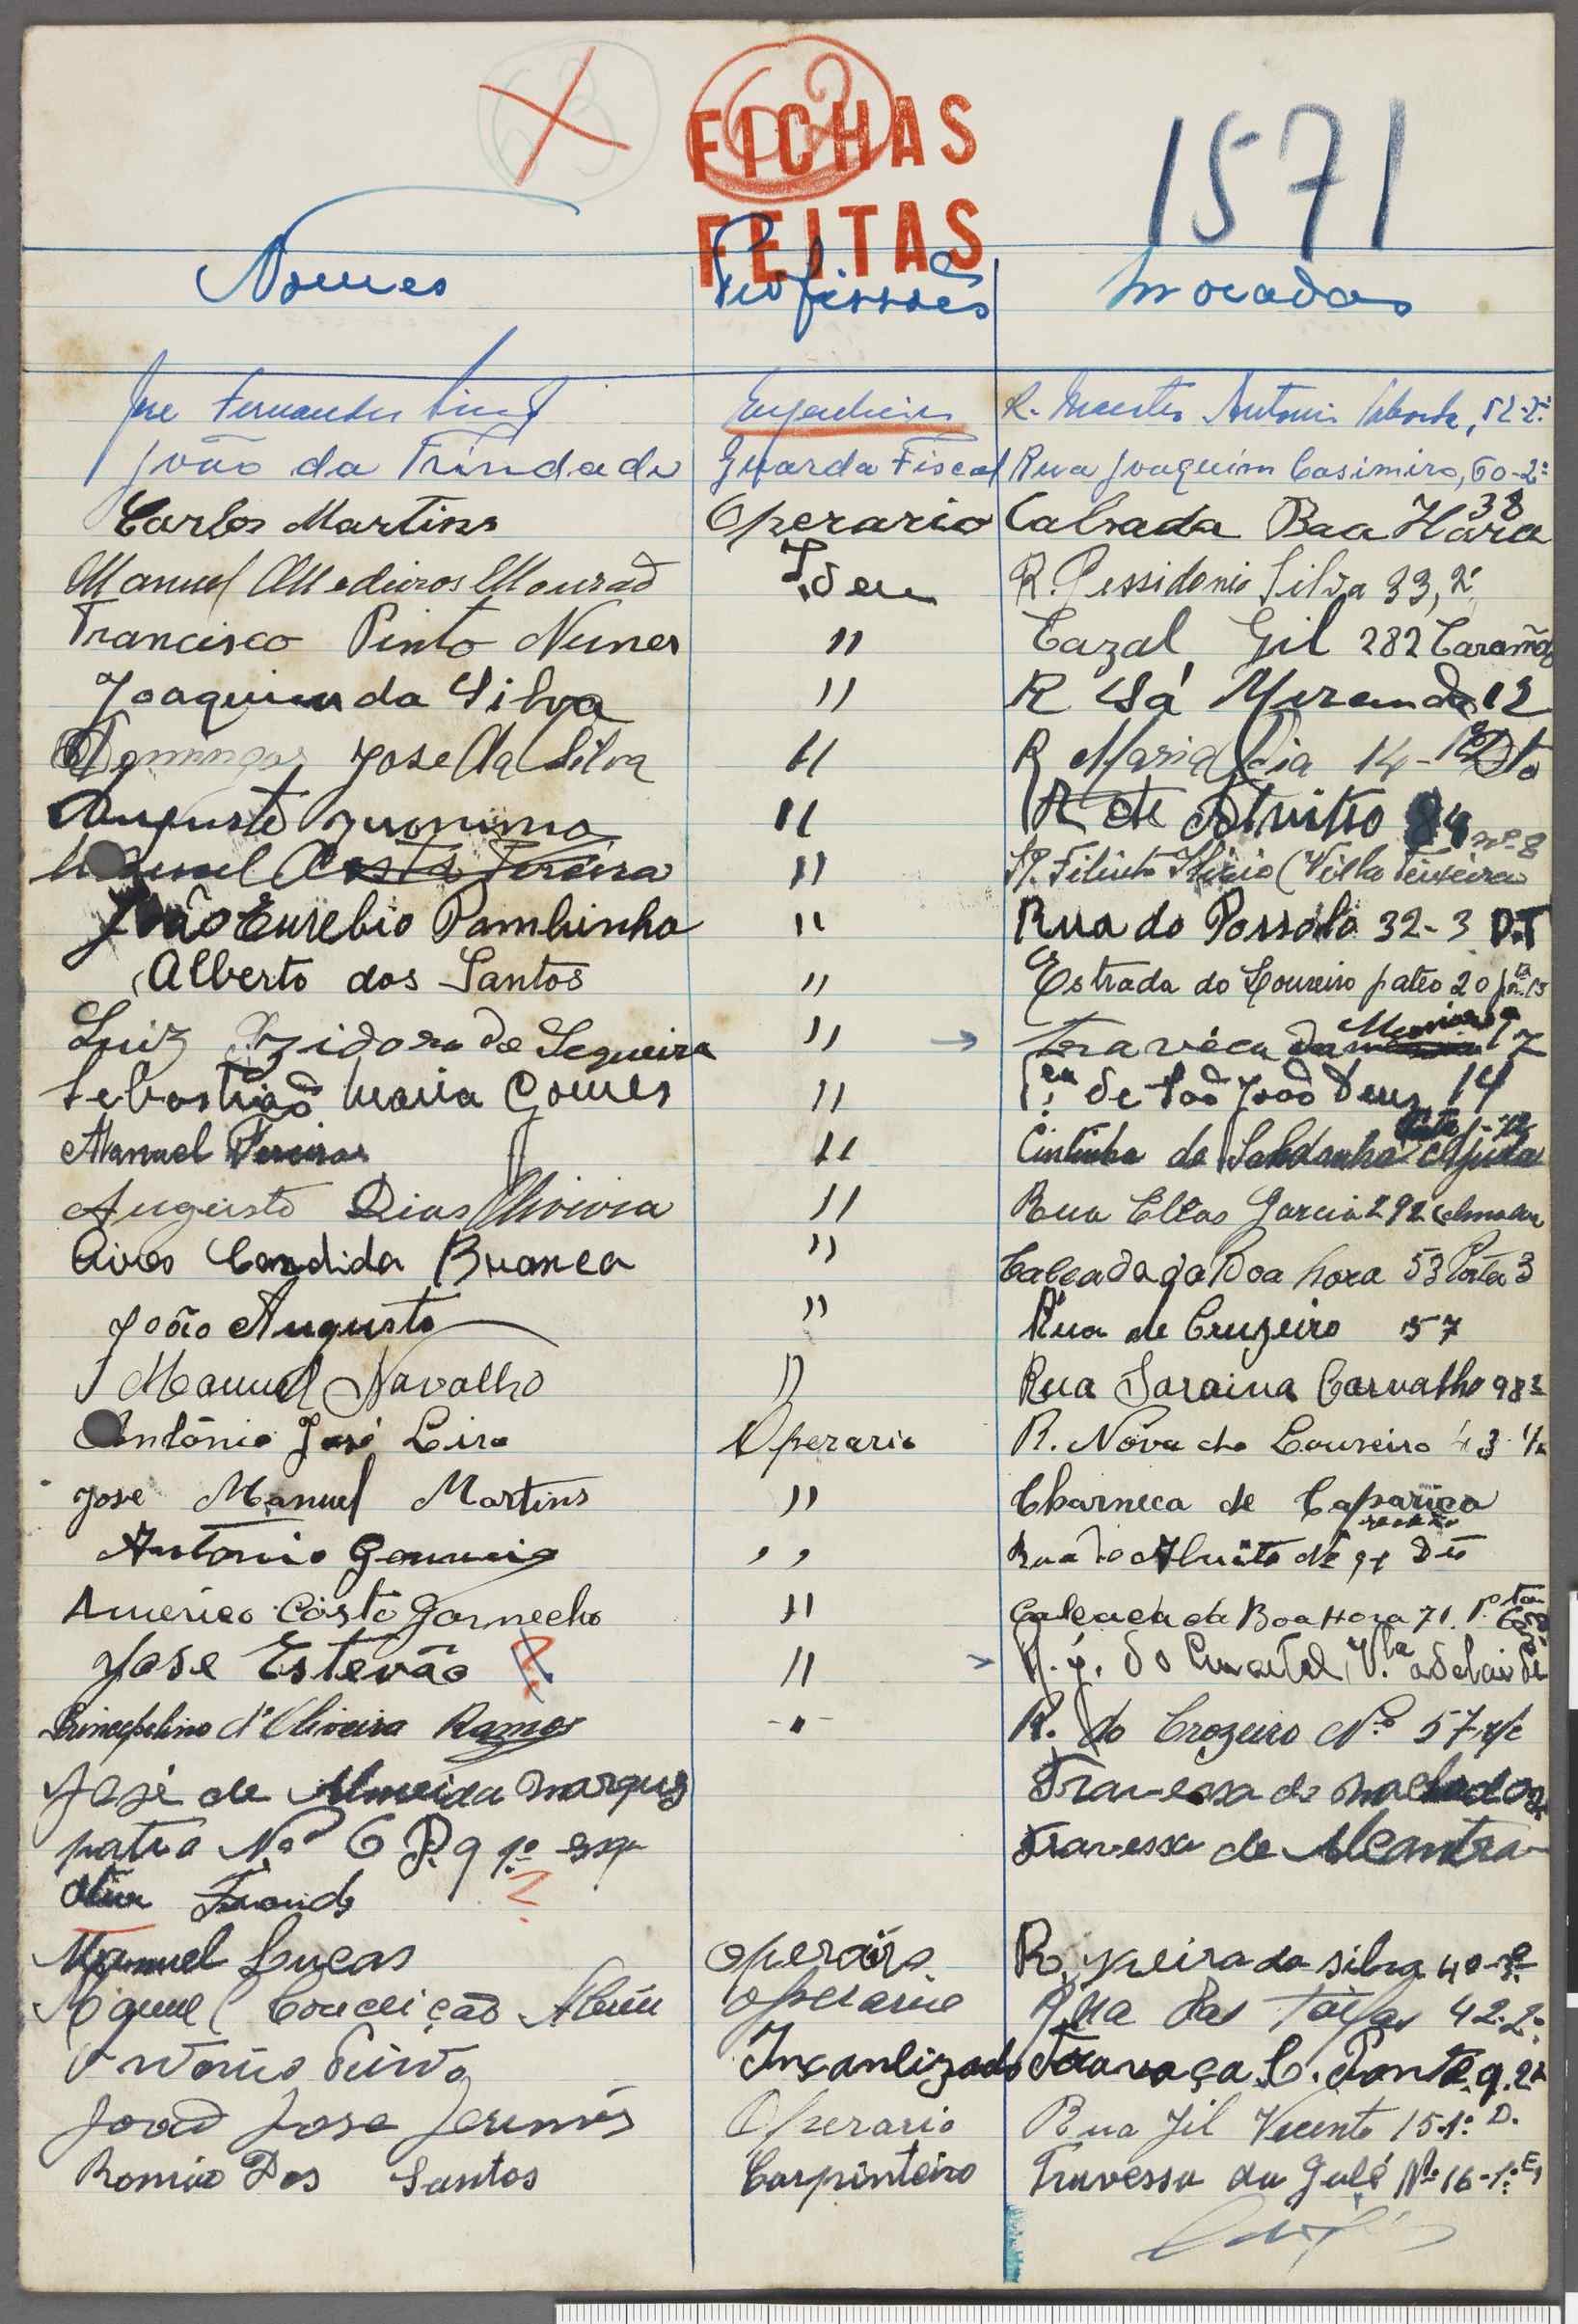 63
62
FICHAS
FEITAS
1571
Nomes Profissões Moradas
Jose Fernandes Engenheiro R. Mestre Antonio Taborda, 52-2º
João da Trindade Guarda Fiscal Rua Joaquim Casimiro, 60-2º
Carlos Martins Operario Calsada Boa Hora 38
Manuel Medeiros Mourão Idem R. Pessidonio Silva 33, 2º
Francisco Pinto Nunes " Cazal Gil 282
Joaquim da Silva " R Sá Meranda 12
Domingos Jose da Silva " R Maria Pia 14-1º Dto
Augusto Jeronimo " R de Alvitro 84
Manuel Costa Pereira " R. Filinto Elisio (Villa Teixeira nº 8
João Eusebio Pambinho " Rua do Possolo 32-3 D.T
Alberto dos Santos " Estrada do Loureiro pateo 20
Luiz Izidoro de Sequeira " → Travéca da 17
Sebastião Maria Gomes " de São João Deus 14
Manuel Pereira " da Saldanha Ajuda
Augusto Dias Oliveira " Rua Elias Garcia 292
Aires Candida Branca " Calçada da Boa hora 53 Porta 3
João Augusto " Rua de Cruzeiro 57
Manuel Navalho " Rua Saraiva Carvalho 98
António José Leiro Operario R. Nova do Loureiro 43
Jose Manuel Martins " Charneca de Caparica
Antonio " Rua do Alvito Nº 91 Dto
Americo Costa Garnecho " Calcada da Boa Hora 71
Jose Estevão ? " → do Quartel, V.la adelaide
d'Oliveira Ramos " R. do Crozeiro Nº 57 r/c
José de Almeida Marques Travessa de
patio Nº 6 P. 9 1º esq Travessa de Alcantra
?
Manuel Lucas operário R. pereira da silva 40-3º
Miguel Conceição operario Rua das Taipas 42-2º
Incanlizado Travaça C. Ponte 9. 2º
João Jose Operario Rua Jil Vecente 15-1º D.
Romão Dos Santos Carpinteiro Travessa da Galé Nº 16-1º E,